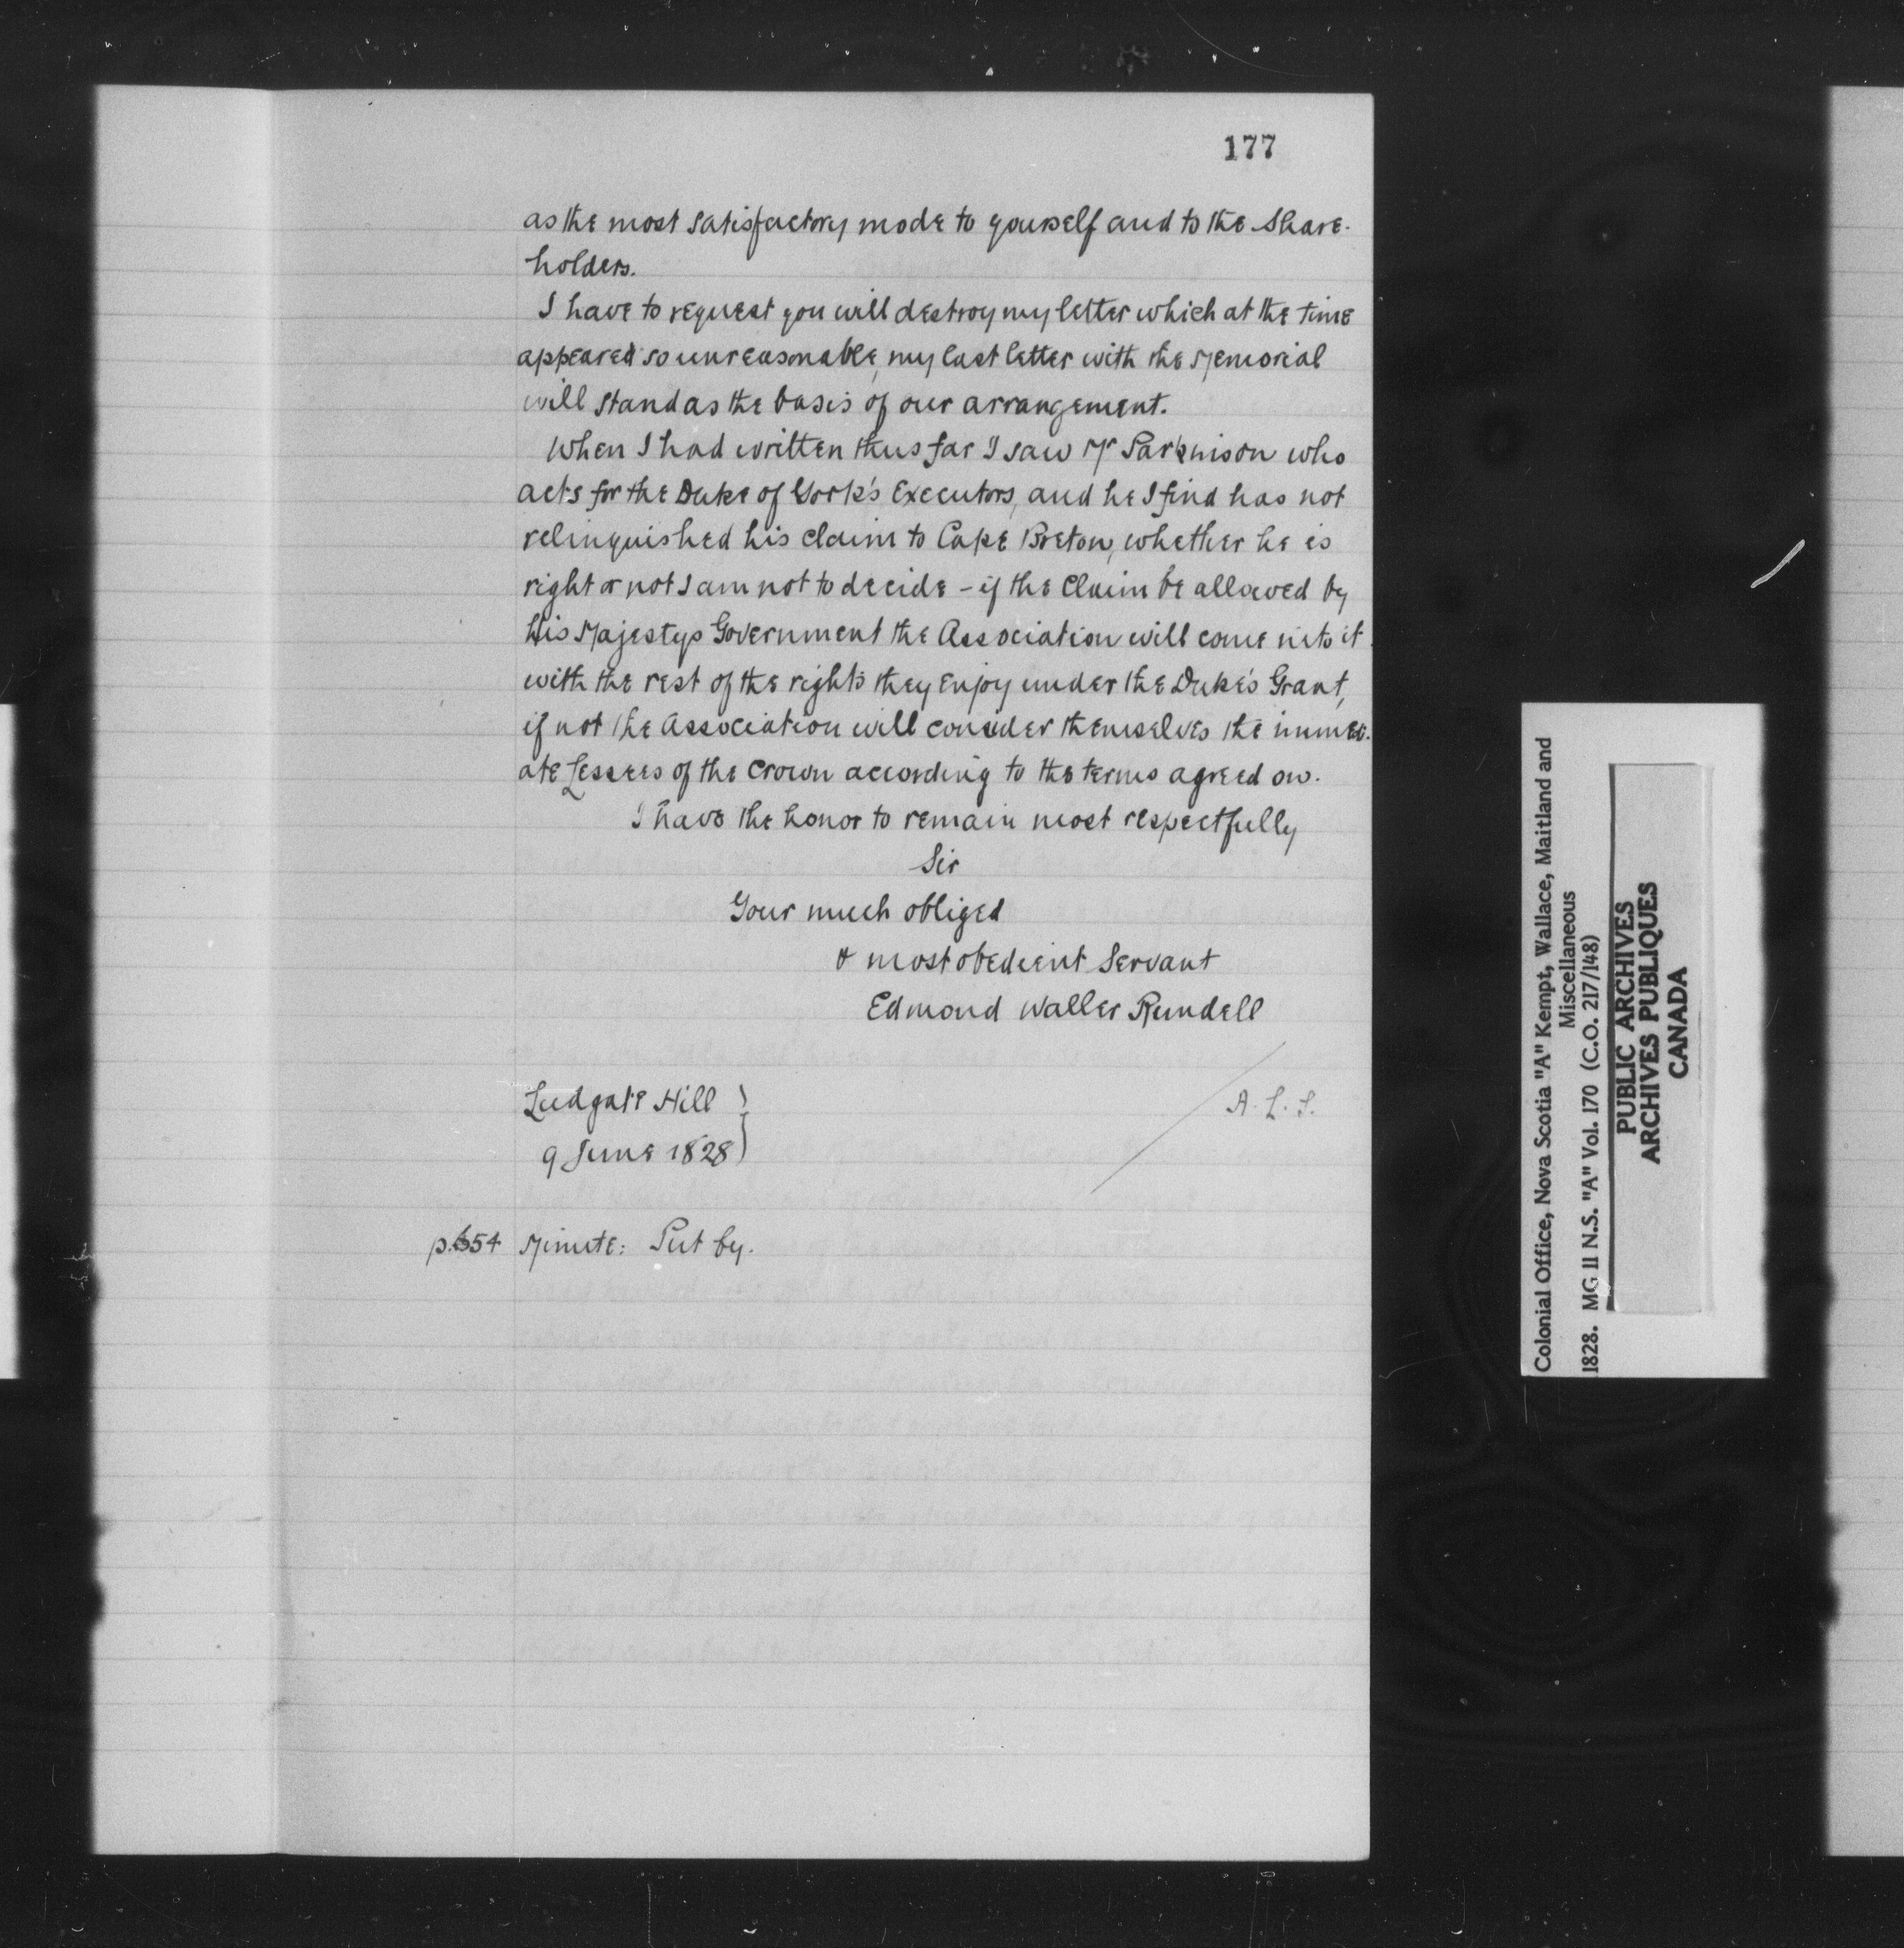 177
as the most satisfactory mode to yourself and to the Share-
holders.
I have to request you will destroy my letter which at the time
appeared so unreasonable, my last letter with the Memorial
will stand as the basis of our arrangement.
When I had written thus far I saw Mr Parkinson who
acts for the Duke of York's Executors, and he I find has not
relinquished his claim to Cape Breton, whether he is
right or not I am not to decide - if the Claim be allowed by
His Majestys Government the Association will come into it
with the rest of the rights they enjoy under the Duke's Grant,
if not the Association will consider themselves the immedi-
ate Lessees of the Crown according to the terms agreed on.
I have the honor to remain most respectfully
Sir
Your much obliged
& most obedient Servant
Edmond Waller Rundell
Ludgate Hill }
9 June 1828 }
A. L. S.
p.654 Minute: Put by.
Colonial Office, Nova Scotia "A" Kempt, Wallace, Maitland and
Miscellaneous
1828. MG 11 N.S. "A" Vol. 170 (C.O. 217/148)
PUBLIC ARCHIVES
ARCHIVES PUBLIQUES
CANADA